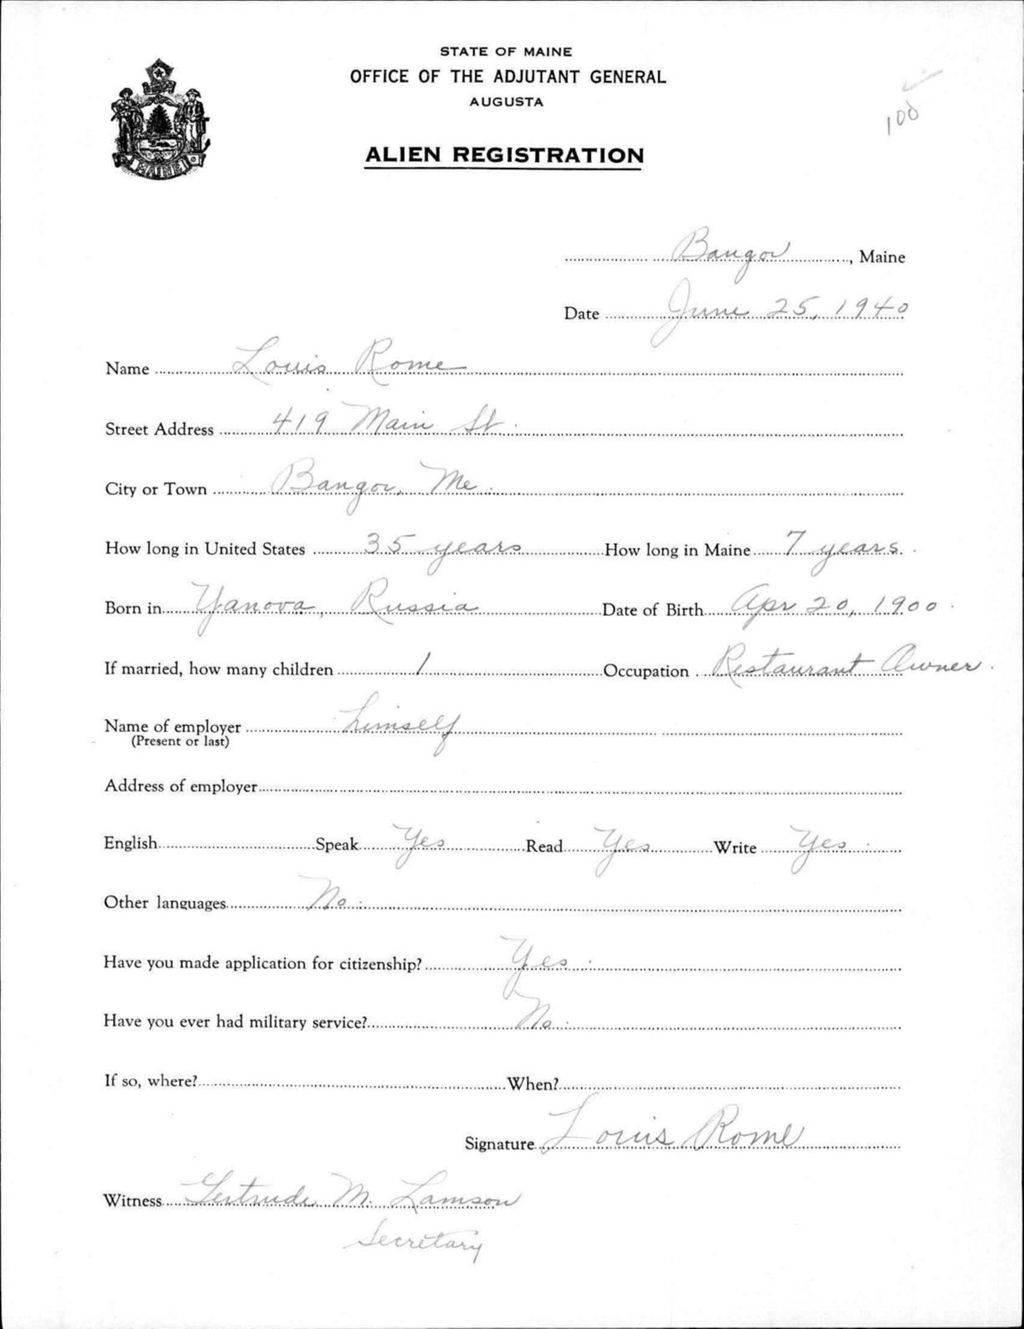 STATE OF MAINE
OFFICE OF THE ADJUTANT GENERAL
AUGUSTA
100
ALIEN REGISTRATION
MAINE
Bangor, Maine
Date June 25, 1940
Name Louis Rome
Street Address 419 Main St.
City or Town Bangor, Me.
How long in United States 35 years How long in Maine 7 years.
Born in Yanova, Russia Date of Birth Apr 20, 1900.
If married, how many children 1 Occupation Restaurant Owner.
Name of employer himself
(Present or last)
Address of employer
English Speak Yes Read Yes Write Yes.
Other languages No.
Have you made application for citizenship? Yes.
Have you ever had military service? No.
If so, where? When?
Signature Louis Rome
Witness Gertrude M. Lamson
Secretary